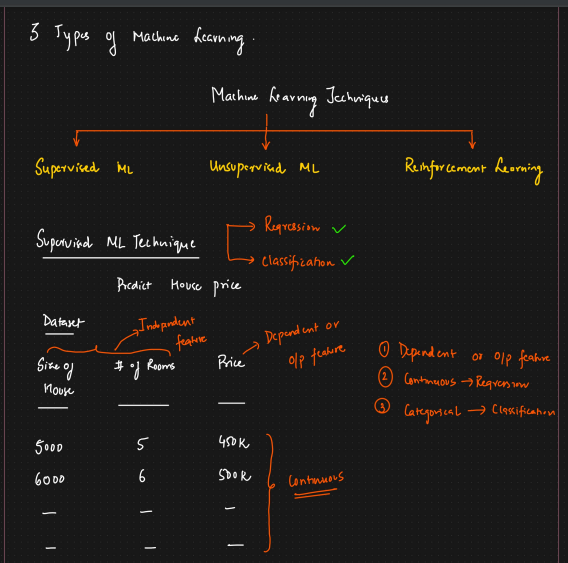 3 Types of Machine Learning.
Machine Learning Techniques
Supervised ML Unsupervised ML Reinforcement Learning
Supervised ML Technique
Regression
Classification
Predict House price
Dataset
Independent feature
Dependent or O/p feature
Size of House # of Rooms Price
5000 5 450K
6000 6 500K
Continuous
1 Dependent or O/p feature
2 Continuous → Regression
3 Categorical → Classification